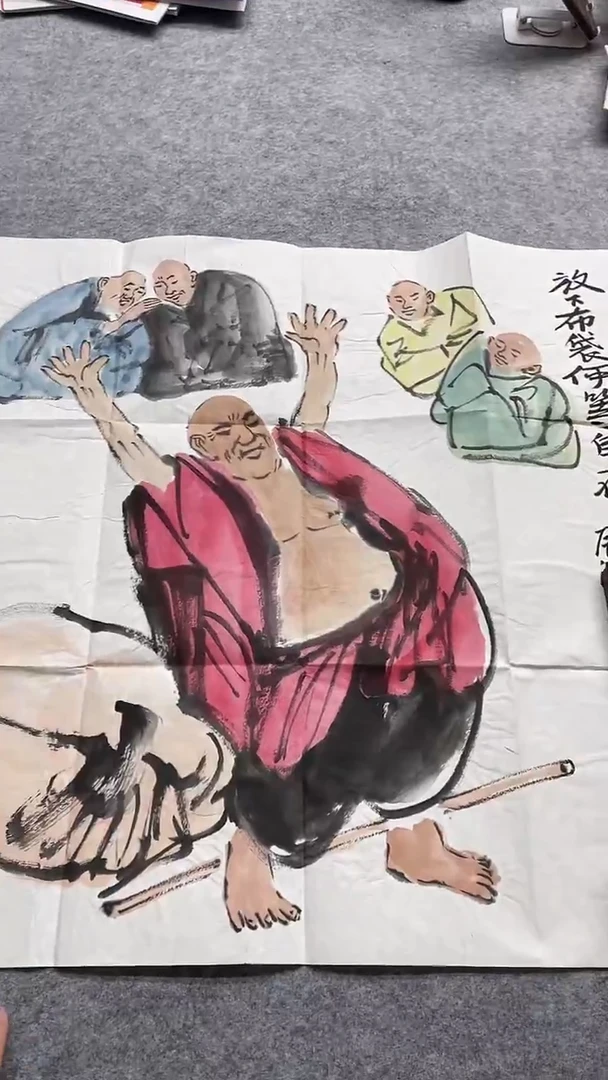 放下布袋何等自在